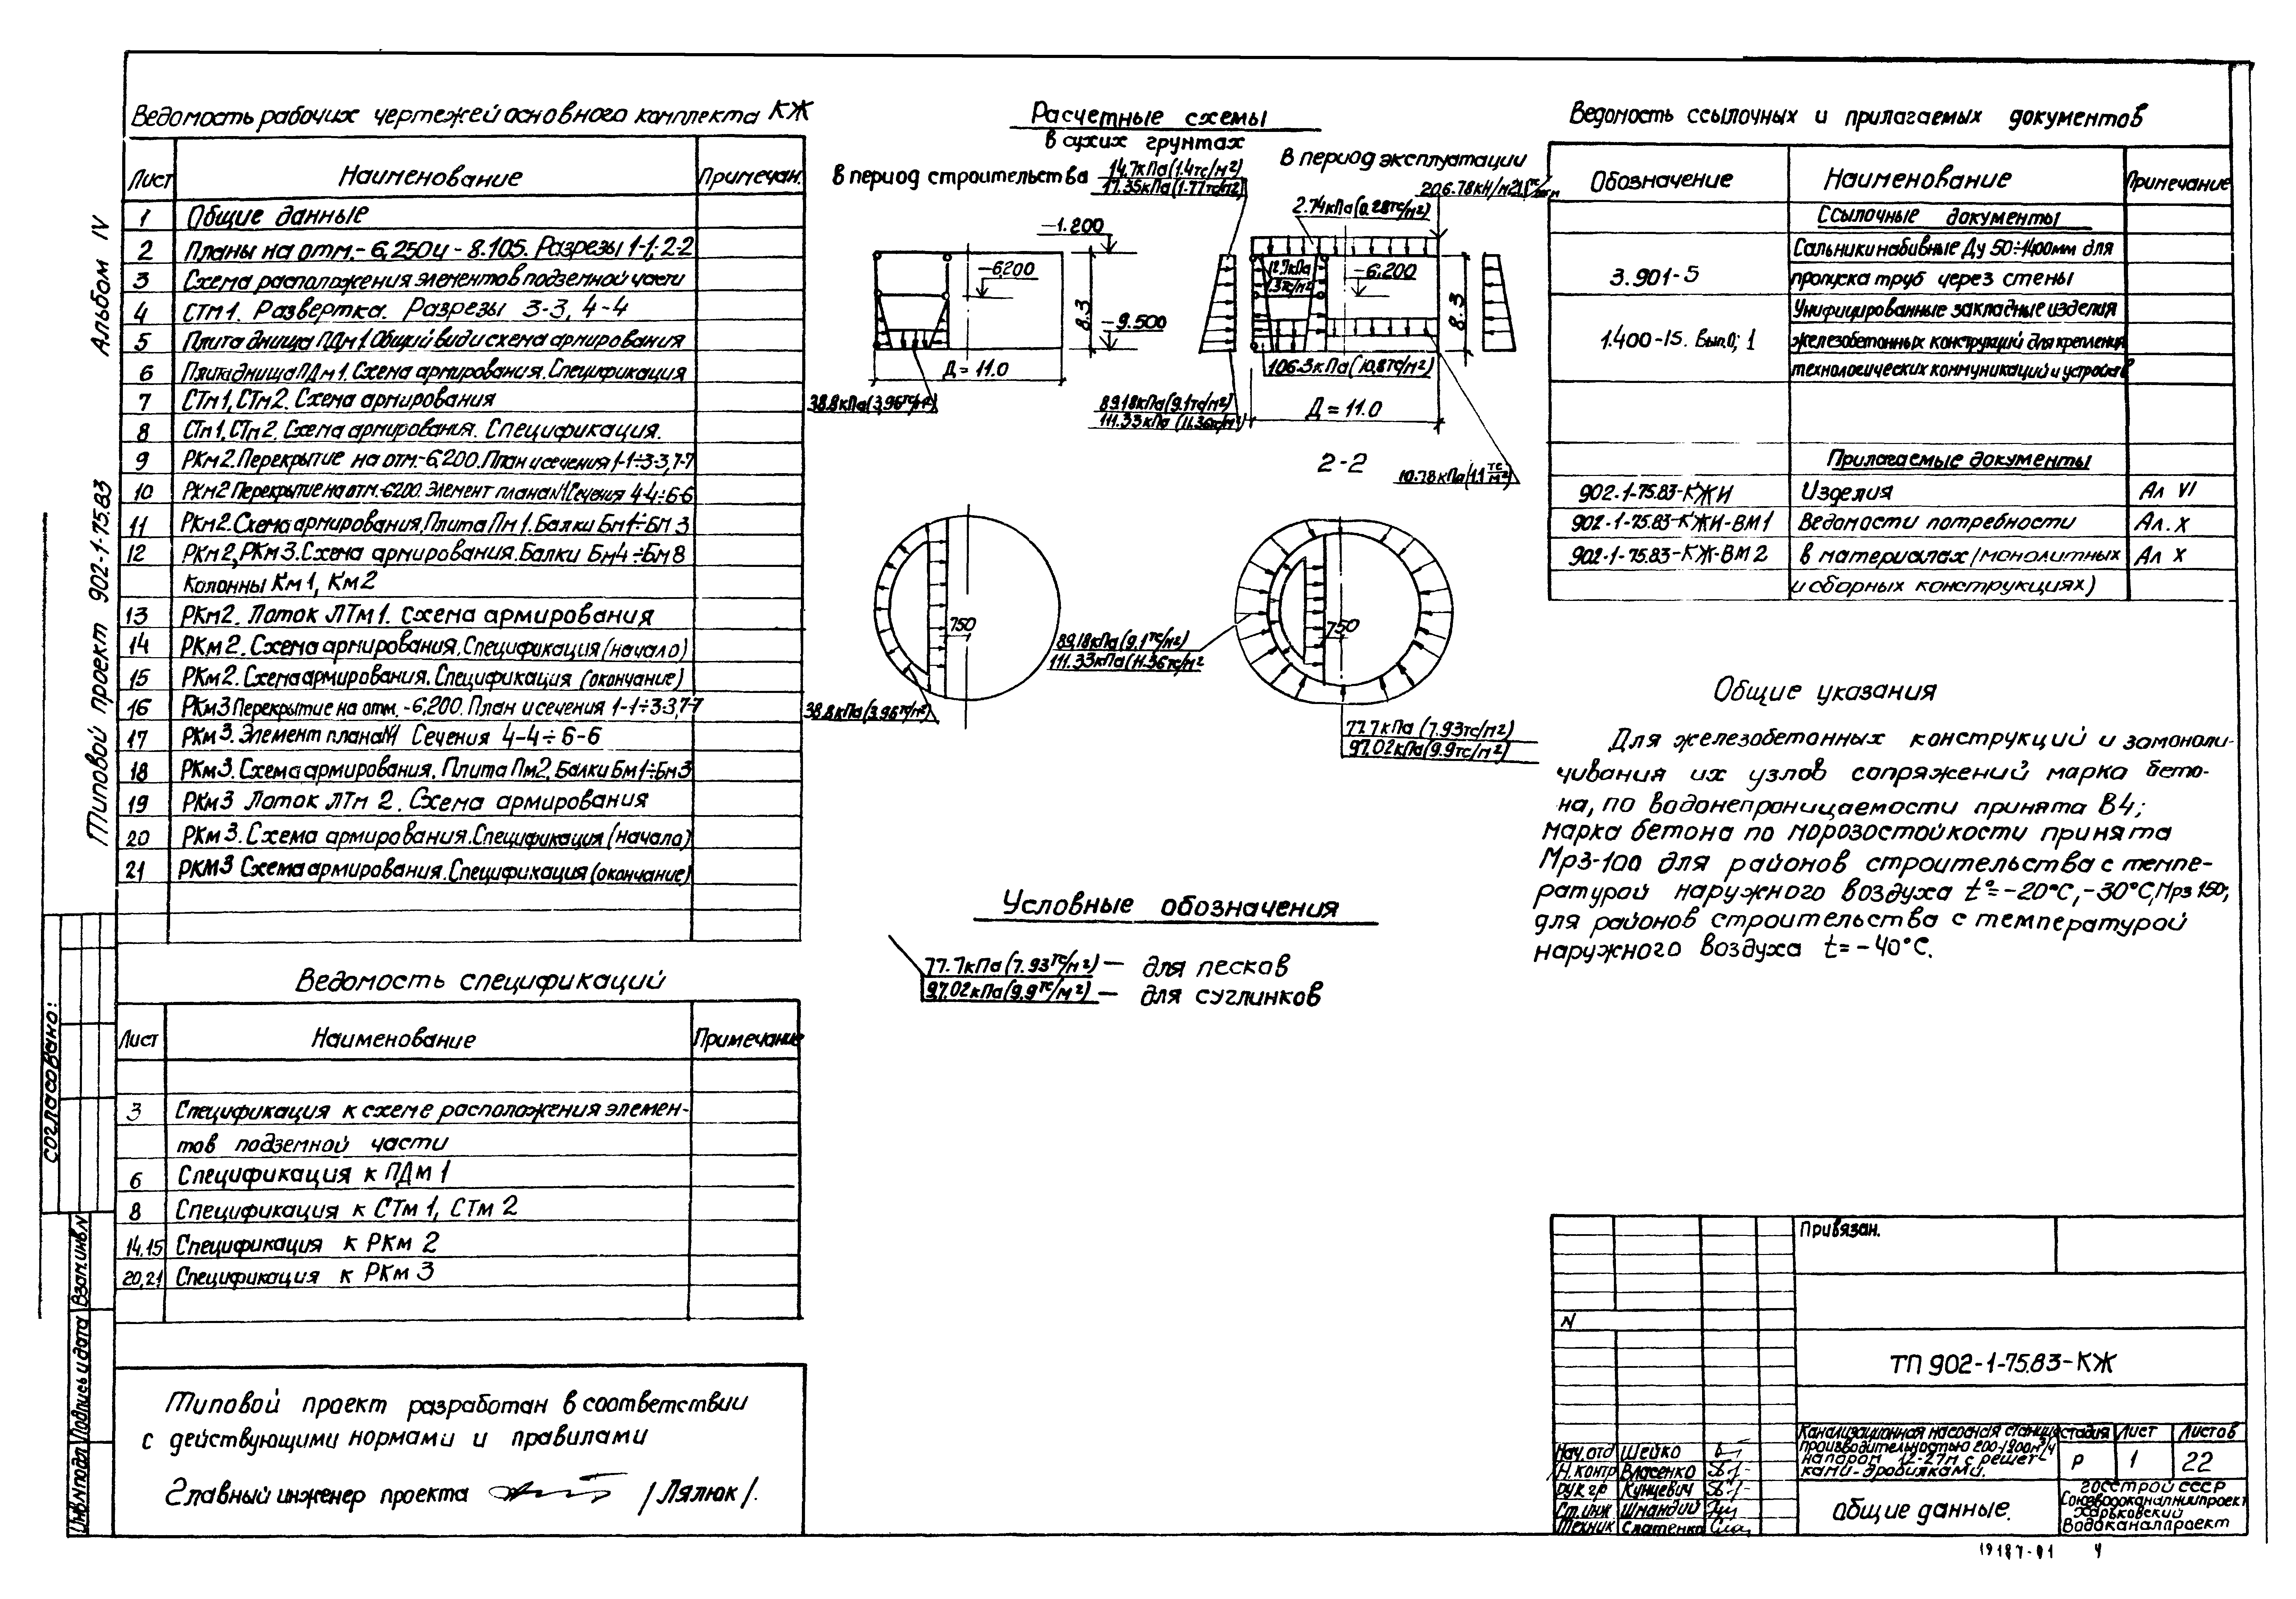 Ведомость рабочих чертежей основного комплекта КЖ
Лист Наименование Примечан.
1 Общие данные
2 Планы на отм.-6,250 и -8.105. Разрезы 1-1; 2-2
3 Схема расположения элементов подземной части
4 СТм1. Развертка. Разрезы 3-3, 4-4
5 Плита днища ПДм1. Общий вид и схема армирования
6 Плита днища ПДм1. Схема армирования. Спецификация
7 СТм1, СТм2. Схема армирования
8 СТм1, СТм2. Схема армирования. Спецификация.
9 РКм2. Перекрытие на отм.-6,200. План и сечения 1-1÷3-3, 7-7
10 РКм2 Перекрытие на отм.-6200. Элемент плана N1 Сечения 4-4÷6-6
11 РКм2. Схема армирования. Плита Пм1. Балки Бм1÷Бм3
12 РКм2, РКм3. Схема армирования. Балки Бм4÷Бм8
Колонны Км1, Км2
13 РКм2. Лоток ЛТм1. Схема армирования
14 РКм2. Схема армирования. Спецификация (начало)
15 РКм2. Схема армирования. Спецификация (окончание)
16 РКм3 Перекрытие на отм. -6,200. План и сечения 1-1÷3-3, 7-7
17 РКм3. Элемент плана N1 Сечения 4-4÷6-6
18 РКм3. Схема армирования. Плита Пм2. Балки Бм1÷Бм3
19 РКм3 Лоток ЛТм 2. Схема армирования
20 РКм3. Схема армирования. Спецификация (начало)
21 РКМ3 Схема армирования. Спецификация (окончание)
Ведомость спецификаций
Лист Наименование Примечание
3 Спецификация к схеме расположения элемен-
тов подземной части
6 Спецификация к ПДм 1
8 Спецификация к СТм 1, СТм 2
14,15 Спецификация к РКм 2
20,21 Спецификация к РКм 3
Типовой проект разработан в соответствии
с действующими нормами и правилами
Главный инженер проекта /Лялюк/.
Типовой проект 902-1-75.83 Альбом IV
Согласовано:
Инв.N подл. Подпись и дата Взам.инв.N
Расчетные схемы
в сухих грунтах
В период строительства
14,7кПа(1.4тс/м²)
17.35кПа(1.77тс/м²)
В период эксплуатации
2.74кПа(0,28тс/м²)
-1.200
-6,200
-9.500
8.3
Д=11.0
38.8кПа(3,96тс/м²)
12.7кПа
1.3тс/м²
-6,200
8.3
106.3кПа(10,8тс/м²)
89.18кПа(9.1тс/м²)
111.33кПа(11.36тс/м²)
Д=11.0
2-2
10.78кПа(1.1тс/м²)
750
38.8кПа(3.96тс/м²)
89,18кПа(9,1тс/м²)
111.33кПа(11.36тс/м²
750
77.7кПа (7.93тс/м²)
97.02кПа(9.9тс/м²)
Условные обозначения
77.7кПа(7.93тс/м²) — для песков
97.02кПа(9.9тс/м²) — для суглинков
Ведомость ссылочных и прилагаемых документов
Обозначение Наименование Примечание
Ссылочные документы
3.901-5 Сальники набивные Ду 50÷1400мм для
пропуска труб через стены
1.400-15. Вып.0; 1 Унифицированные закладные изделия
железобетонных конструкций для крепления
технологических коммуникаций и устройств
Прилагаемые документы
902-1-75.83-КЖИ Изделия Ал VI
902-1-75.83-КЖИ-ВМ1 Ведомости потребности Ал. X
902-1-75.83-КЖ-ВМ2 в материалах /монолитных Ал X
и сборных конструкциях)
Общие указания
Для железобетонных конструкций и замоноли-
чивания их узлов сопряжений марка бето-
на, по водонепроницаемости принята В4;
марка бетона по морозостойкости принята
Мрз-100 для районов строительства с темпе-
ратурой наружного воздуха t°=-20°С,-30°С, Мрз 150;
для районов строительства с температурой
наружного воздуха t=-40°С.
Привязан.
N
ТП 902-1-75.83-КЖ
Нач.отд Шейко
Н.контр Власенко
Рук.гр Кунцевич
Ст.инж Шмандий
Техник Слатенко
Канализационная насосная станция
производительностью 200-1900м³/ч
напором 12-27м с решет-
ками-дробилками.
Стадия Лист Листов
Р 1 22
Общие данные.
Госстрой СССР
Союзводоканалниипроект
Харьковский
Водоканалпроект
19187-01 4